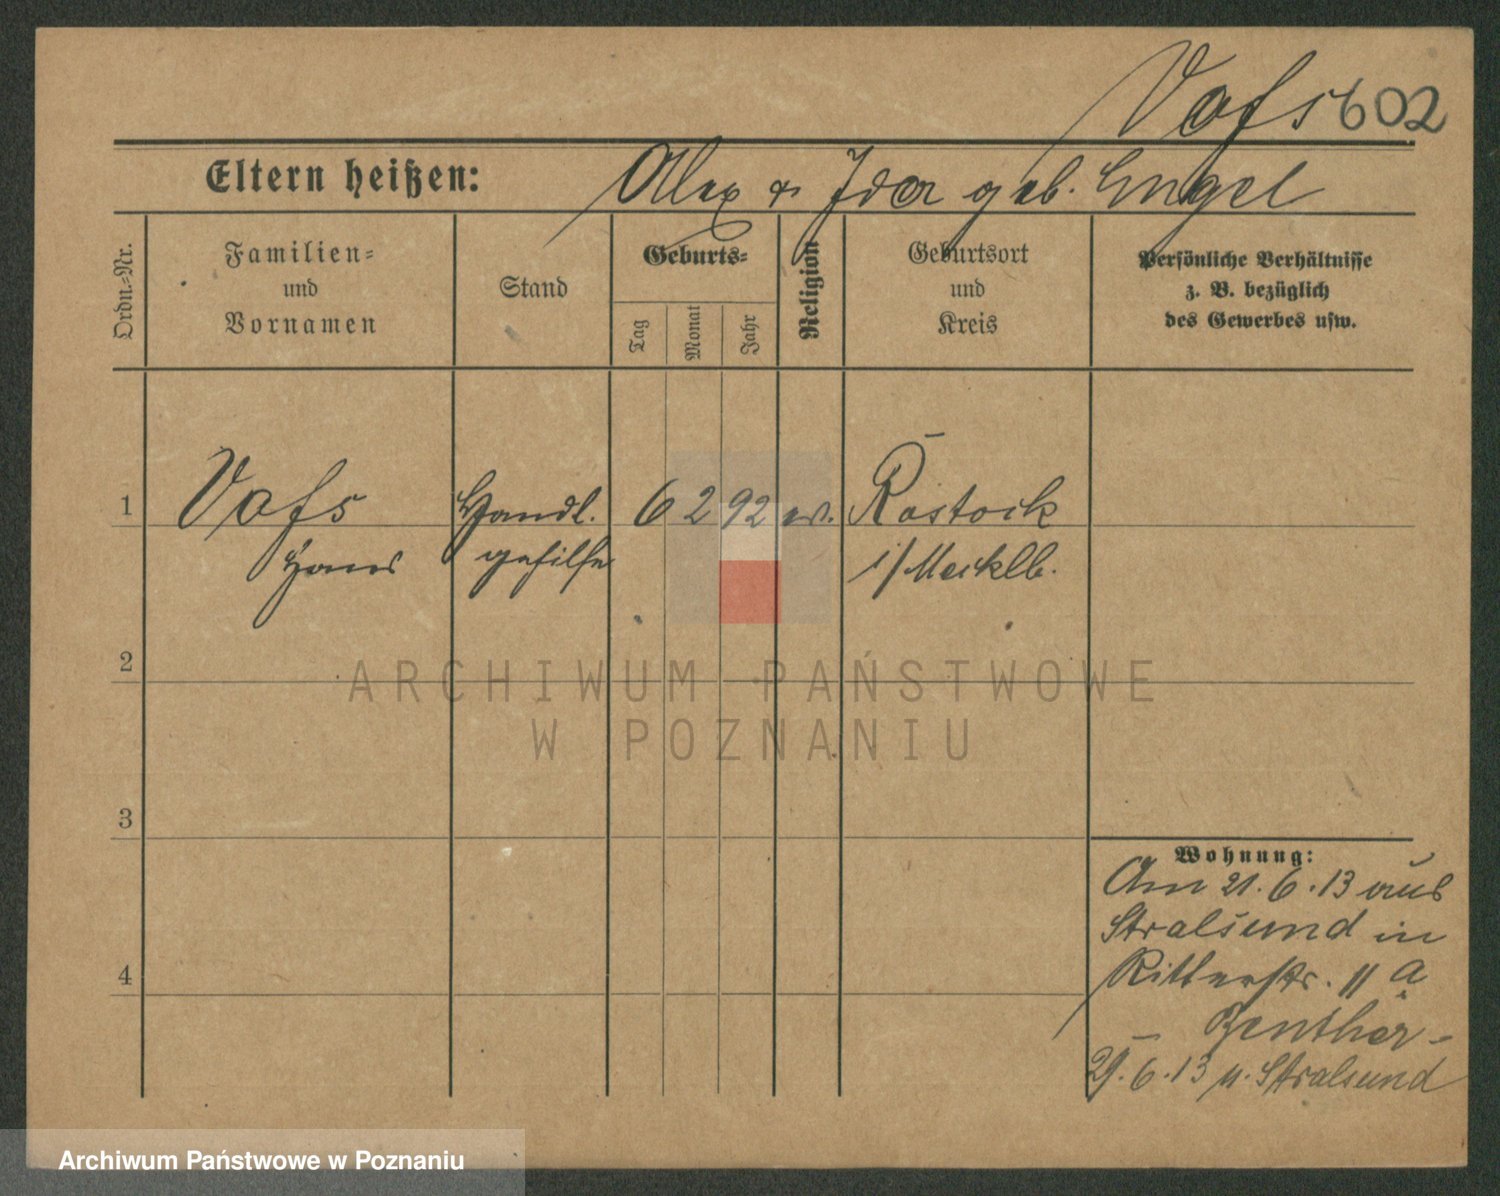 Vofs 602
Eltern heißen: Alex & Ida geb. Engel
Ordn.-Nr.
Familien-
und
Vornamen
Stand
Geburts-
Tag
Monat
Jahr
Religion
Geburtsort
und
Kreis
Persönliche Verhältnisse
z. B. bezüglich
des Gewerbes usw.
1 Vofs Handl. 6 2 92 ev. Rostock
Hans gehilfe i/Mecklb.
2
ARCHIWUM PAŃSTWOWE
W POZNANIU
3
4
Wohnung:
Am 21.6.13 aus
Stralsund in
Ritterstr. 11 a
29.6.13 n. Stralsund
Archiwum Państwowe w Poznaniu